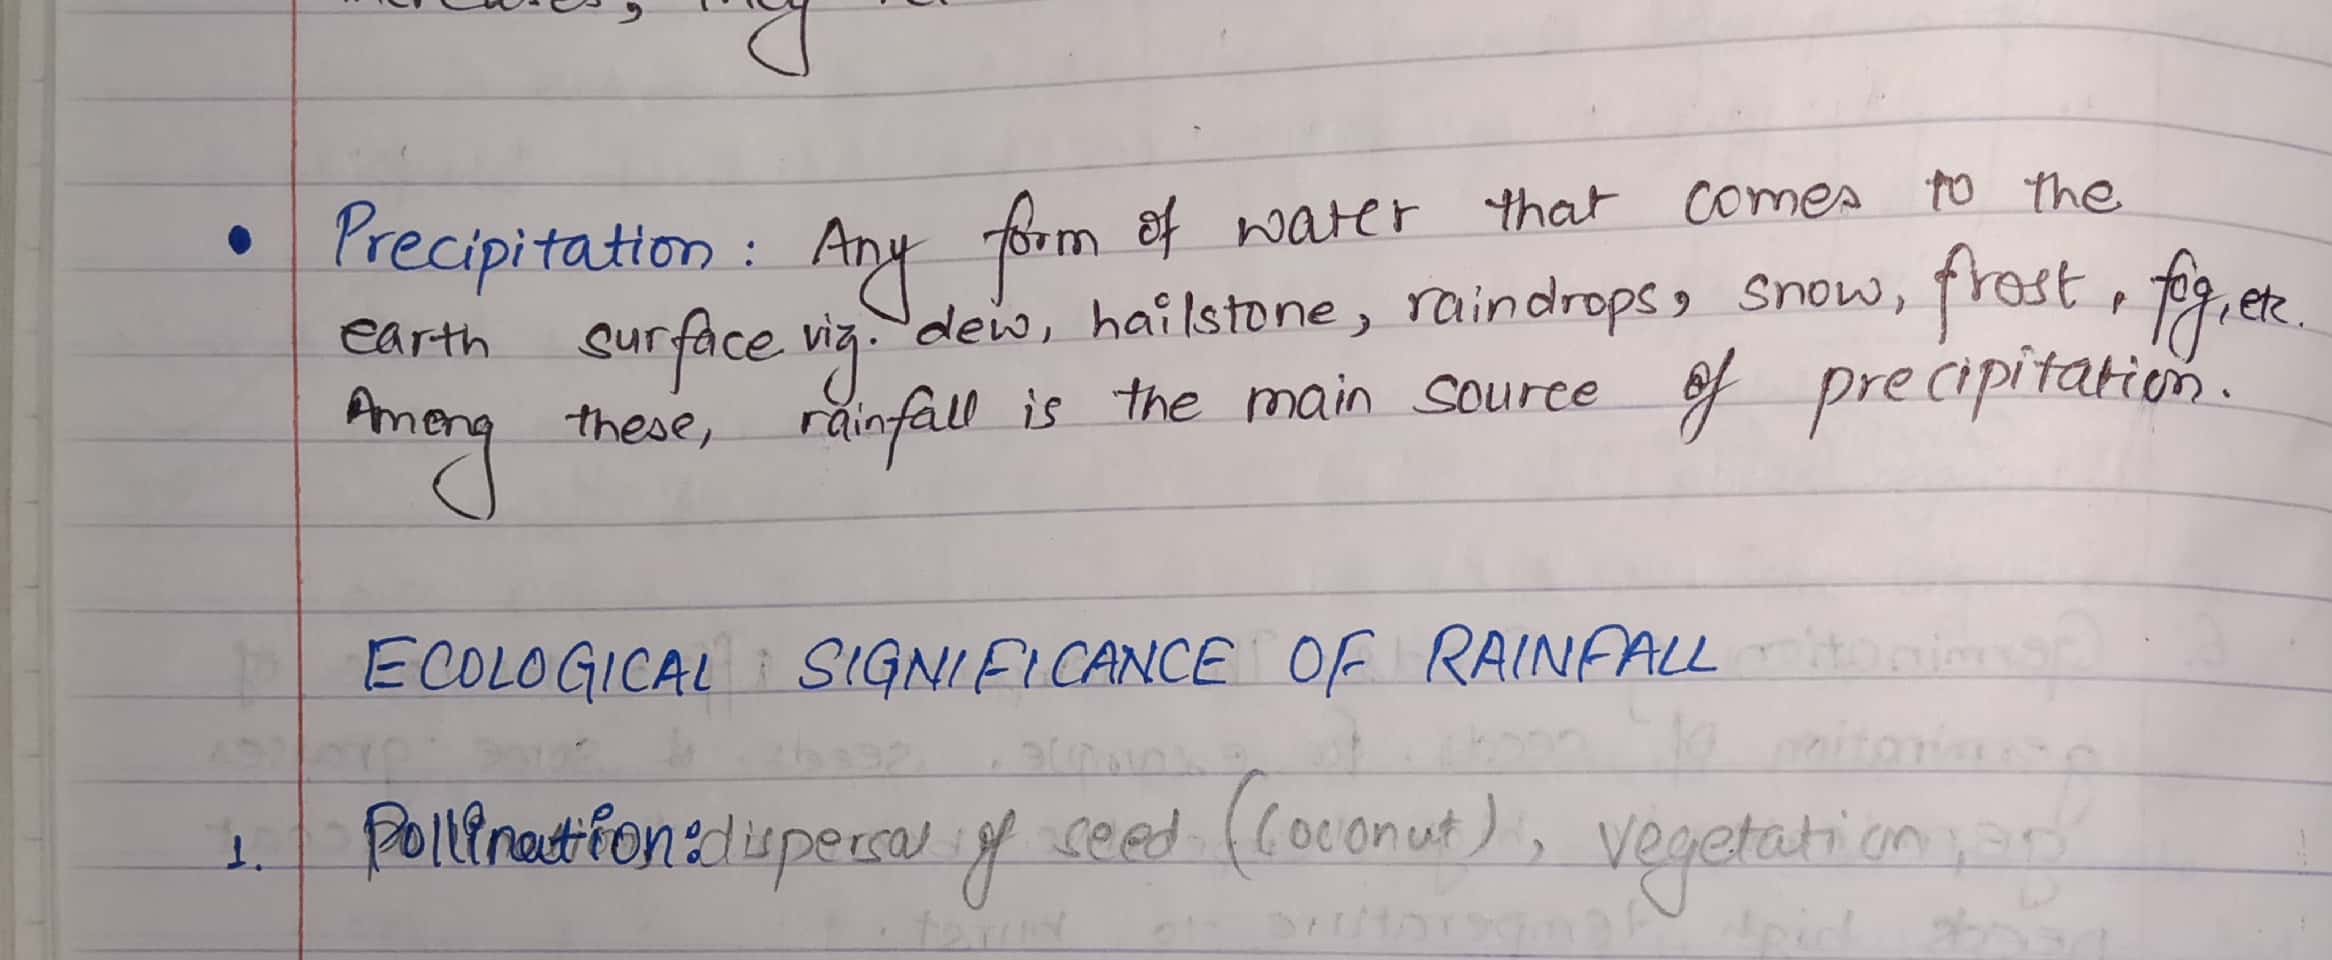 • Precipitation : Any form of water that comes to the
earth surface viz. dew, hailstone, raindrops, snow, frost, fog, etc.
Among these, rainfall is the main source of precipitation.
ECOLOGICAL SIGNIFICANCE OF RAINFALL
1. Pollination: dispersal of seed (Coconut), vegetation,